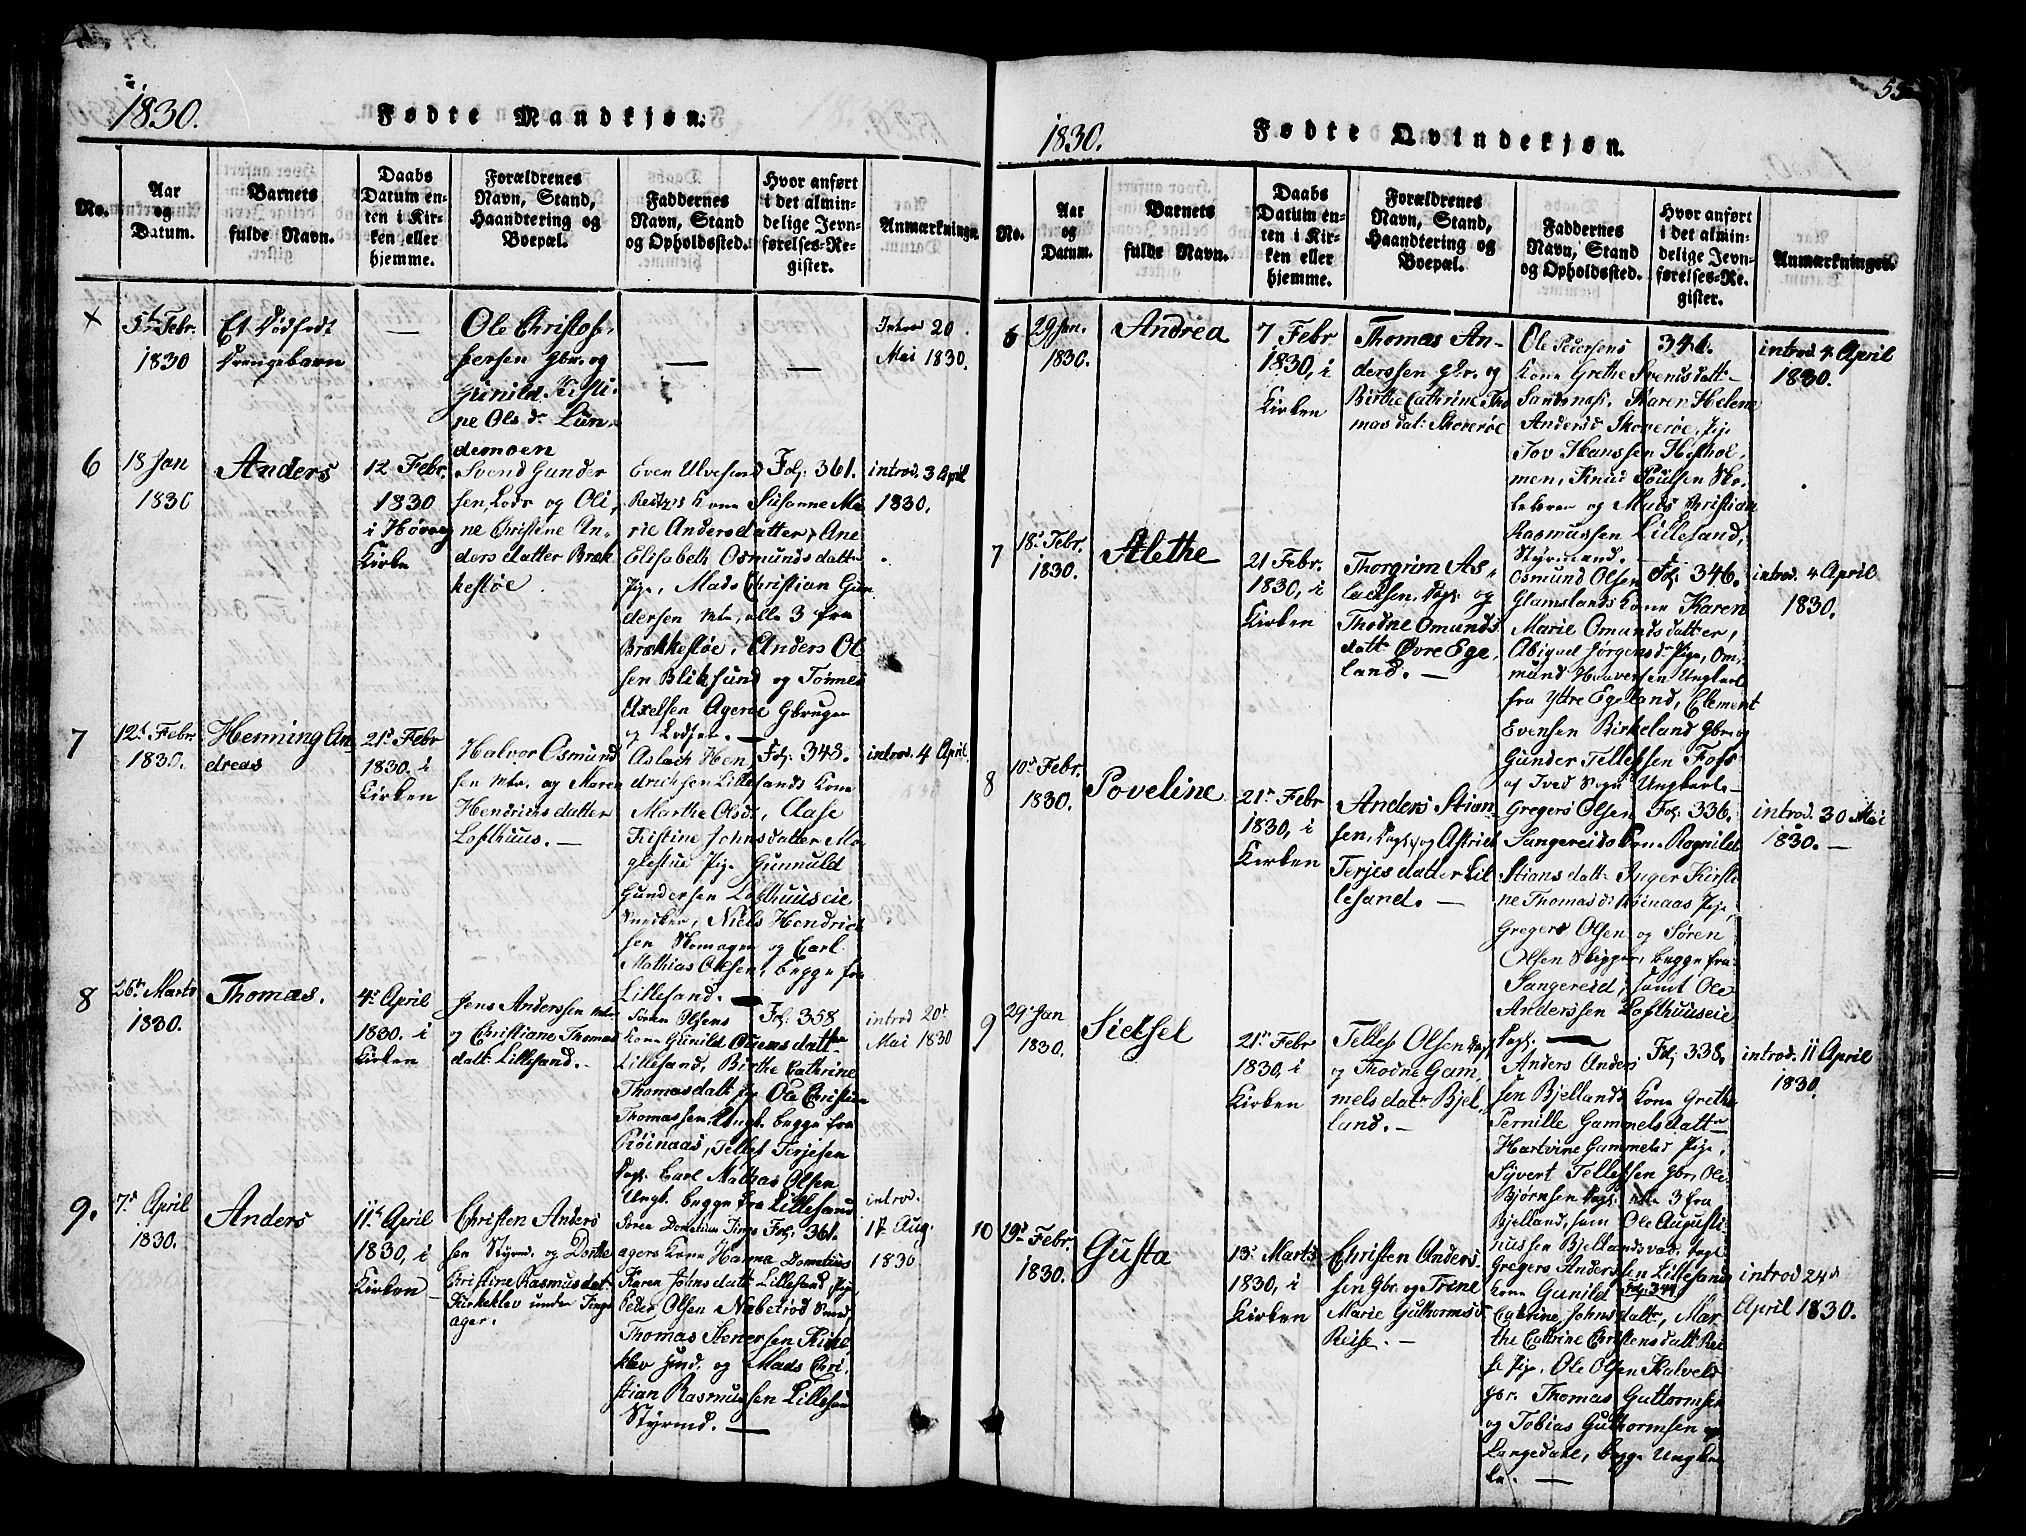 1830.
Fødte Mandkjøn.
No.
Aar
og
Datum.
Barnets
fulde Navn.
Daabs
Datum en-
ten i Kir-
ken eller
hjemme.
Forældrenes
Navn, Stand,
Haandtering og
Boepæl.
Faddernes
Navn, Stand
og Opholdssted.
Hvor anført
i det almin-
delige Jevn-
førelses-Re-
gister.
Anmærkninger.
5t Febr.
1830
Et Dødfødt
Drengebarn
—
Ole Christof-
fersen Gbr. og
Gunild Kisti-
ne Ols dr Lun-
demoen
—
—
Introd 20
Mai 1830.
6
18 Jan
1830
Anders
12 Febr.
1830
i Høvaag
Kirke
Svend Gunder
sen, Lods og Oli-
ne Christine An-
ders datter Bræk-
kestøe.
Even Ulvesund
Kone Susanne Ma-
rie Andersdatter, Ane
Elisabeth Osmundsdattr
Pige, Mads Christian Gun
dersen Mtr, alle 3 fra
Brækkestøe, Anders Ol
sen Bliksund og Tønnes
Axelsen Agerøe Gbruger
og Lodser. —
Fol: 361.
introd. 3 April
1830.
7
12t Febr
1830.
Henning An
dreas
21t Febr
1830. i
Kirken
Halvor Osmund
sen Mtr. og Maren
Hendrichsdatter
Lofthuus. —
Aslach Hen
drichsen Lillesands Kone
Marthe Olsdr, Aase
Kistine Johnsdatter Mo
glestue Pige Gunnuld
Gundersen Lofthuuseie
Snedker, Niels Hendrich
sen Skomager og Carl
Mathias Olsen, begge fra
Lillesand. —
Fol: 348.
introd. 4 April
8
26t Marts
1830.
Thomas.
4t April
1830. i
Kirken
Jens Anderssen Mtr
og Christiane Thomas
datt. Lillesand. —
Søren Olsens
Kone Gunild
Lillesand, Birthe Cathrine
Thomasdatt. Pig Ole Christian
Thomassen, Ungk. begge fra
Røinaas, Tellef Terjesen
Dagl. Carl Mathias Olsen
Ungk. begge fra Lillesand
Fol: 358
introd 20t
Mai 1830
9.
7t April
1830.
Anders
11t April
1830, i
Kirken —
Christen Anders
sen Styrmd. og Dorthe
Christine Rasmusdat.
Kirkeklev under Tinge
ager.
Søren Dometius Tinge
agers Kone Hanna Dometius
Karen Johnsdatt Lillesand Pige
Peder Olsen Næbetrød
Thomas Stenersen Kirke
klev Jnd. og Mads Chri-
stian Rasmussen Lillesand
Styrmd. —
Fol: 361.
introd.
17 Aug.
1830
55
1830.
Fødte Qvindekjøn.
No.
Aar
og
Datum.
Barnets
fulde Navn.
Daabs
Datum en-
ten i Kir-
ken eller
hjemme.
Forældrenes
Navn, Stand,
Haandtering og
Boepæl.
Faddernes
Navn, Stand
og Opholdssted.
Hvor anført
i det almin-
delige Jevn-
førelses-Re-
gister.
Anmærkninger.
6
29 Jan.
1830.
Andrea
7 Febr
1830, i
Kirken
Thomas An-
derssen Gbr. og
Birthe Cathrine Tho
masdat: Skorerøe
Ole Pedersens
Kone Grethe Svendsdatt
Karen Helene
Andersd Skorerøe, Pige
Tov Hanssen Hesthol-
men, Knud Poulsen
og Mads Christian
Rasmussen Lillesand,
Styrmand. —
introd 4 April
1830.
7
18t Febr.
1830.
Alethe
21 Febr.
1830, i
Kirken
Thorgrim As-
lachsen, Dagl. og
Thodne Omunds
datt Øvre Ege-
land. —
Osmund Olsen
Glamslands Kone Karen
Marie Omundsdatter,
Abigael Jørgensdr Pige, Om-
mund Haaversen Ungkarl
fra Ytre Egeland, Clement
Evensen Birkeland Gbr. og
Gunder Tellefsen Fos
af Tved Sogn Ungkarle —
Fol: 346.
introd. 4 April
1830.
8
10t Febr.
1830.
Poveline
21t Febr
1830, i
Kirken
Anders Stian-
sen, Dagl. og Astrid
Terjesdatter Lil-
lesand. —
Gregers Olsen
Sangereids Kone Ragnild
Stiansdatt Inger Kirsti-
ne Thomasd. Røinaas Pige,
Gregers Olsen og Søren
Olsen Skipper, begge fra
Sangereid, samt Ole
Anderssen Lofthuuseie
Dagl. —
Fol: 336.
introd. 30 Mai
1830. —
9
29 Jan
1830.
Sidsel
21t Febr
1830, i
Kirken
Tellef Olsen Dagl
og Thodne Gam-
melsdatr Bjel-
land. —
Anders Anders
sen Bjellands Kone Grethe
Pernille Gammelsdattr
Hartvine Gammelsd Pige,
Syvert Tellefsen Gbr, Ole
Bjørnsen Dagl. alle 3 fra
Bjelland, samt Ole Augusti-
nussen Bjellandsvad, Dagl
Fol: 338.
introd. 11 April
1830.
10
19t Febr.
1830.
Gusta
13t Marts
1830, i
Kirken
Christen Anders
sen Gbr. og Trine
Marie Guthormsd
Reise. —
Gregers Anderssen Lillesands
Kone Gunild
Cathrine Johnsdattr, Mar-
the Cathrine Christensdatt Rei
se Pige, Ole Olsen Kalveld
Gbr. Thomas Guttormsen
og Tobias Guthormsen
Langedahl, begge Ungkar
le. —
introd 24d
April 1830.